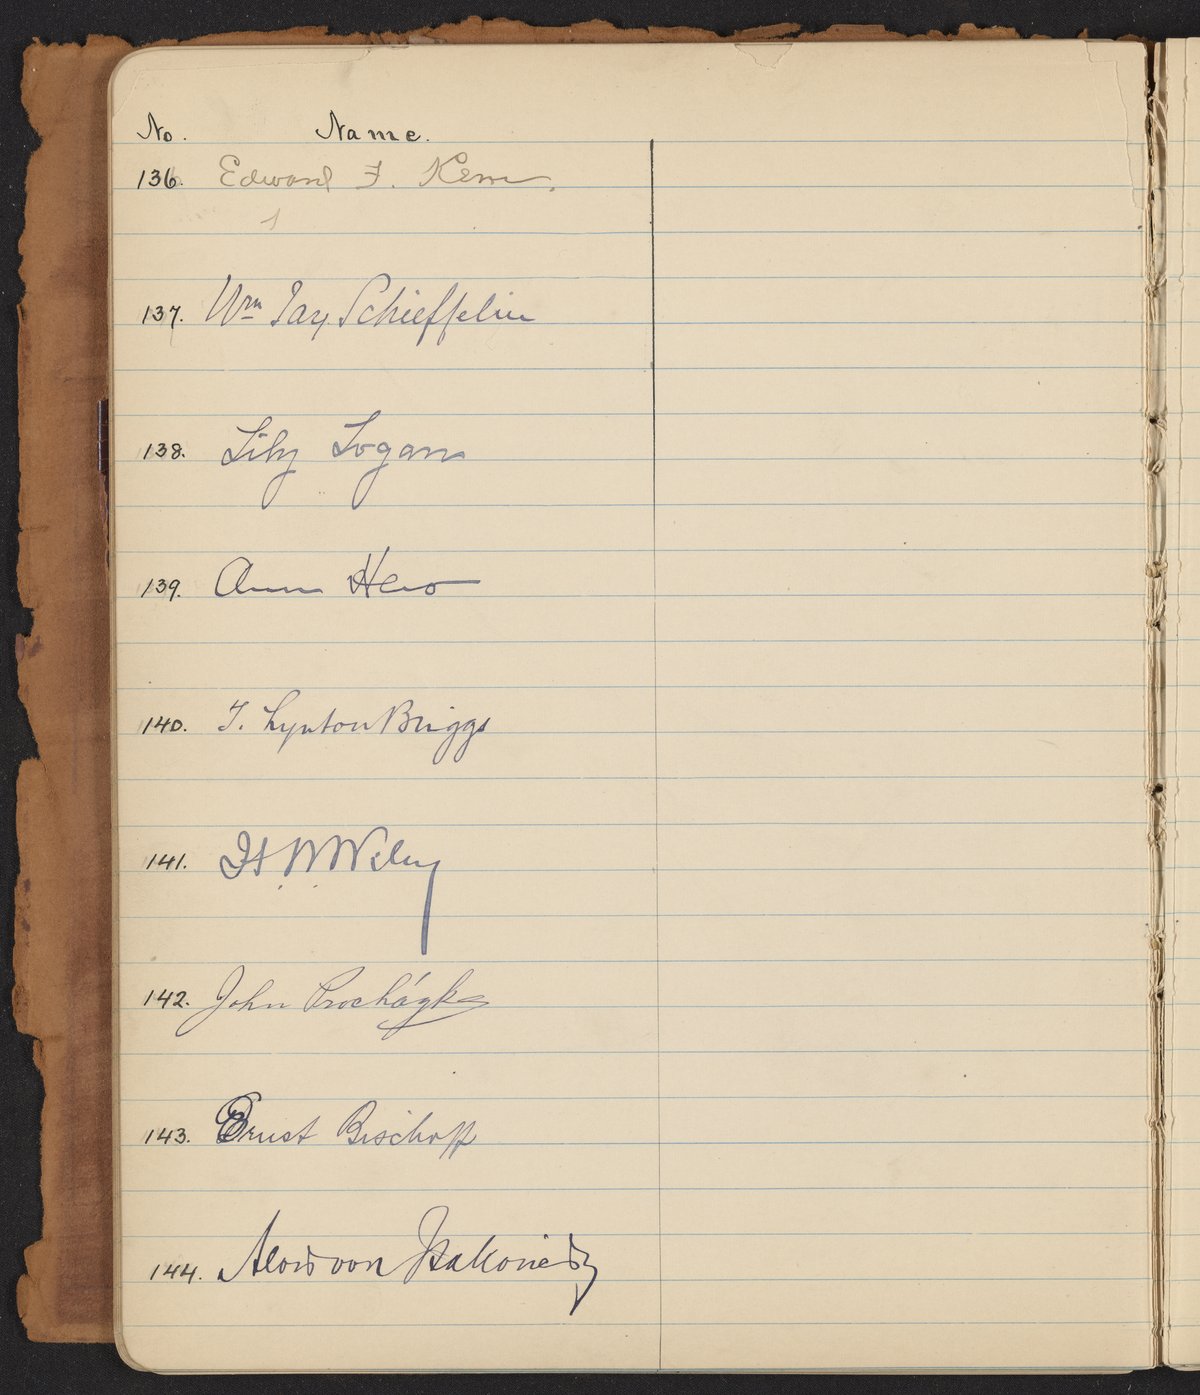 No. Name.
136. Edward F.
137. Wm Jay Schieffelin
138. Lily Logan
139. Ann Hero
140. F. Lynton Briggs
141. H. W. Wiley
142. John Procházka
143. Ernst Bischoff
144. Alois von